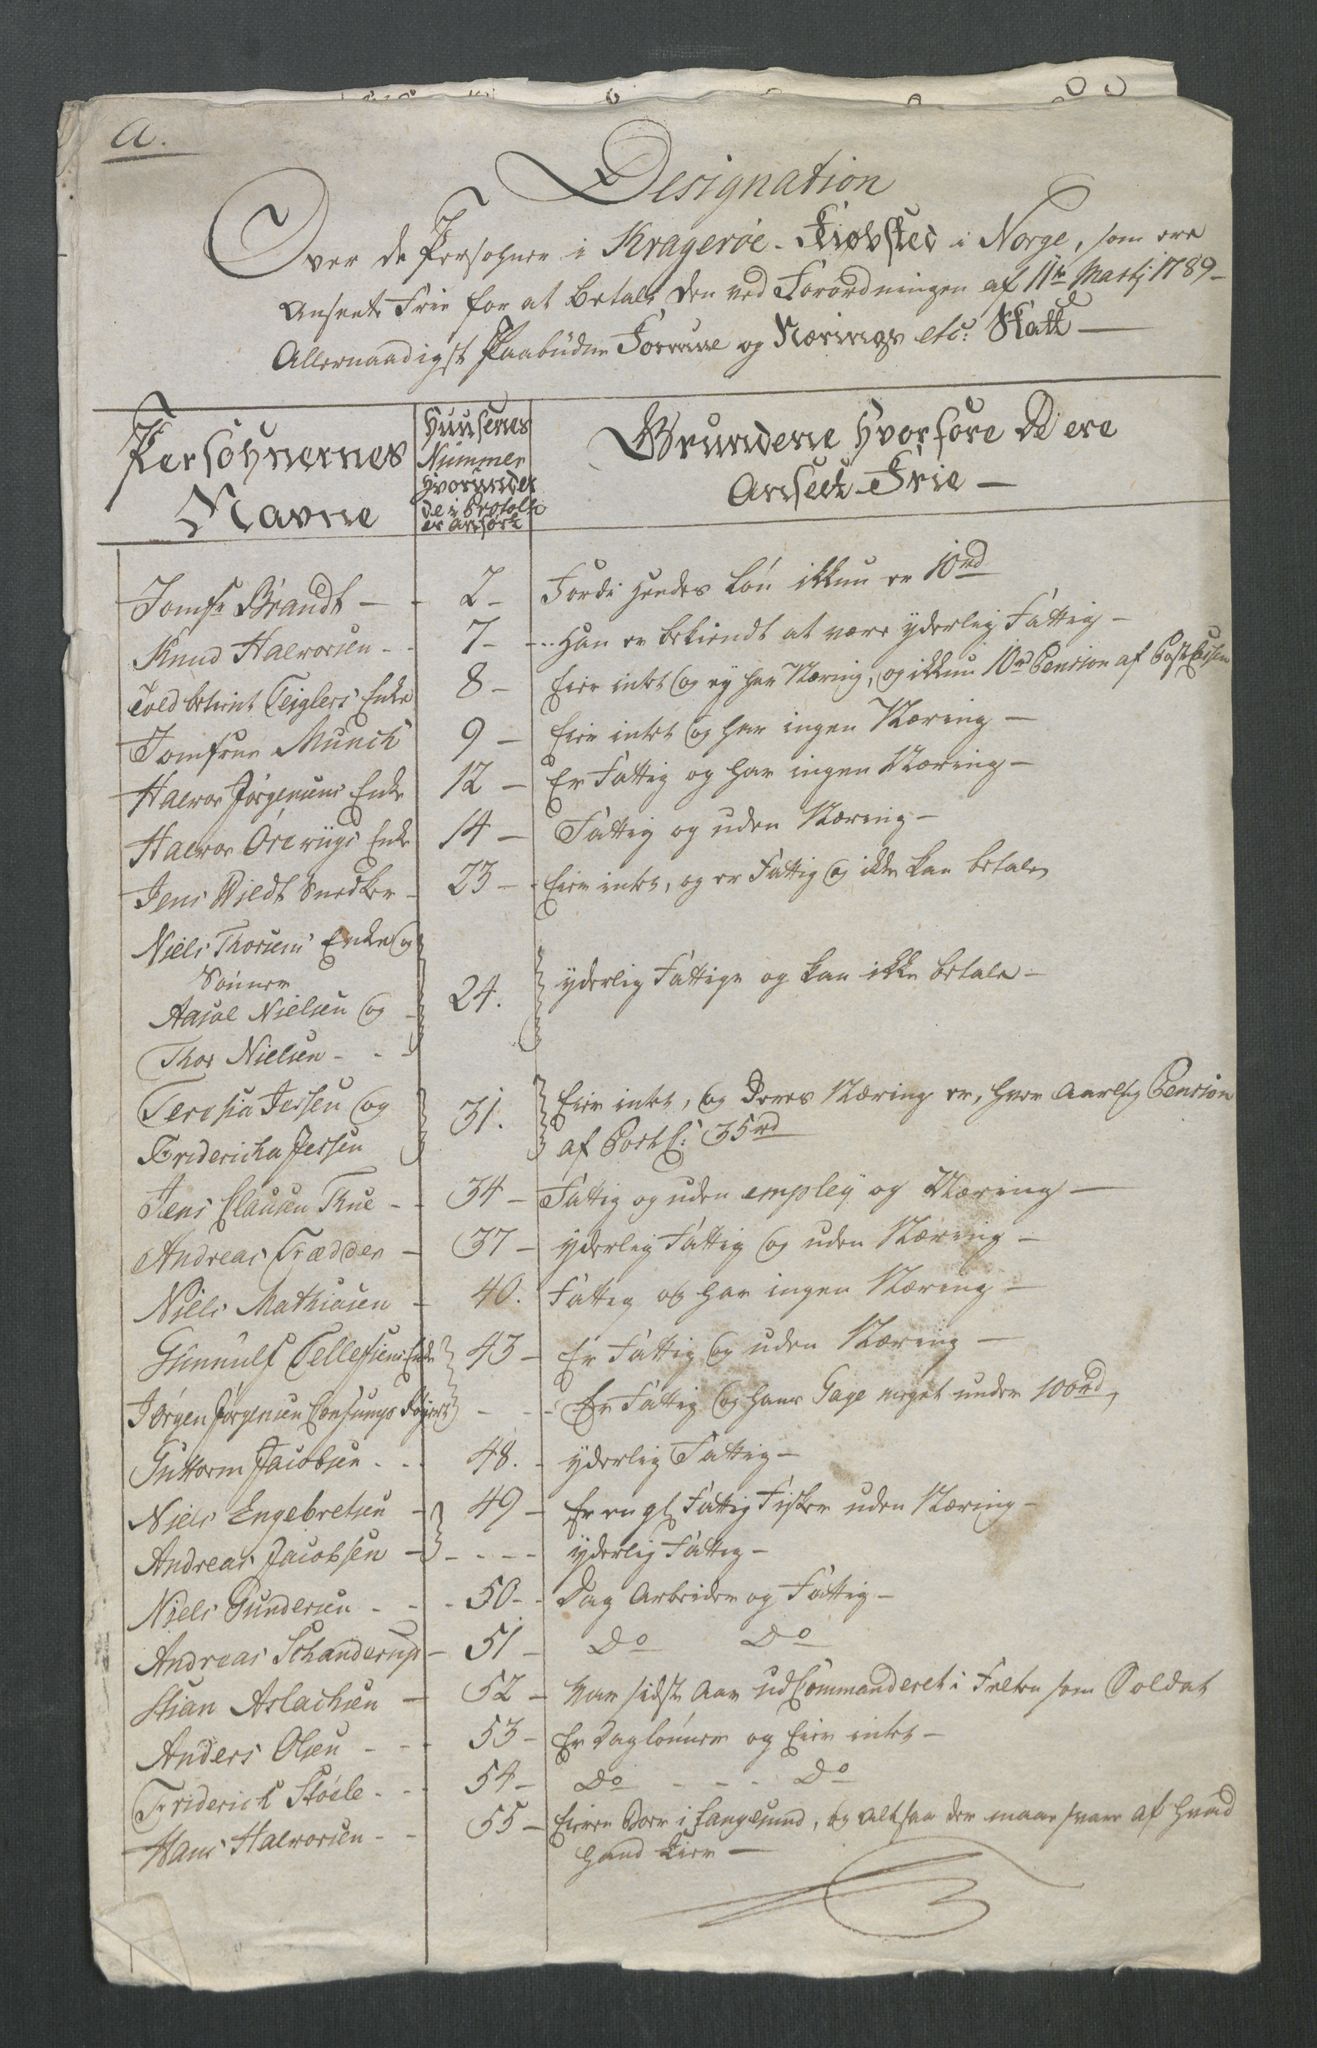 A.
Designation
Over de Persohner i Kragerøe Kiøbsted i Norge, som ere
Anseete Frie for at betale den ved Forordningen af 11te Martj 1789
Allernaadigst Paabudne Formue og Nærings etc: Skatt
Persohnernes Navne
Huusenes Nummer hvorunder de i Protoll: er anført
Grundene hvorfore de ere Anseete Frie
Jomfr Brandt - 2 - Fordi hendes Løn ikkun er 10rd
Knud Halvorsen - 7 - Han er bekiendt at være yderlig Fattig
Told betient Teiglers Enke 8 - Eier intet og ey har Næring, og ikkun 10rd Pension af Post Cassen
Jomfrue Munck 9 - Eier intet og har ingen Næring
Halvor Jørgensens Enke 12 - Er Fattig og har ingen Næring
Halvor Enke 14 - Fattig og uden Næring
Jens Wildt Snedker 23 - Eier intet, og er Fattig og ikke kan betale
Niels Thorsens Enke og
Sønner
Aasol Nielsen og 24. yderlig Fattige og kan ikke betale
Thor Nielsen
Teresia Jessen og 31. Eier intet, og deres Næring er, hver Aarlig Pension
Fridericha Jessen af Post C: 35rd
Jens Clausen True 34 - Fattig og uden employ og Næring
Andreas Trædder 37 - yderlig Fattig og uden Næring
Niels Mathiasen 40. Fattig og har ingen Næring
Gunnulf Tellefsens Enke 43 - Er Fattig og uden Næring
Jørgen Jørgensen Consumps - Er Fattig og hans Gage meget under 100rd
Guttorm Jacobsen 48. yderlig Fattig
Niels Engebretsen 49 - Er en gl. Fattig Fisker uden Næring
Andreas Jacobsen - yderlig Fattig
Niels Gundersen 50 - Dag Arbeider og Fattig
Andreas Schanderup 51 - Do Do
Stian Aslachsen 52 - Var sidste Aar udCommanderet i Felten som Soldat
Anders Olsen 53 - Er Daglønner og Eier intet
Friderich Støele 54 - Do - - - Do
Hans Halvorsen 55 - Eieren Boer i Langesund, og altsaa der maae svare af hvad
hand Eier